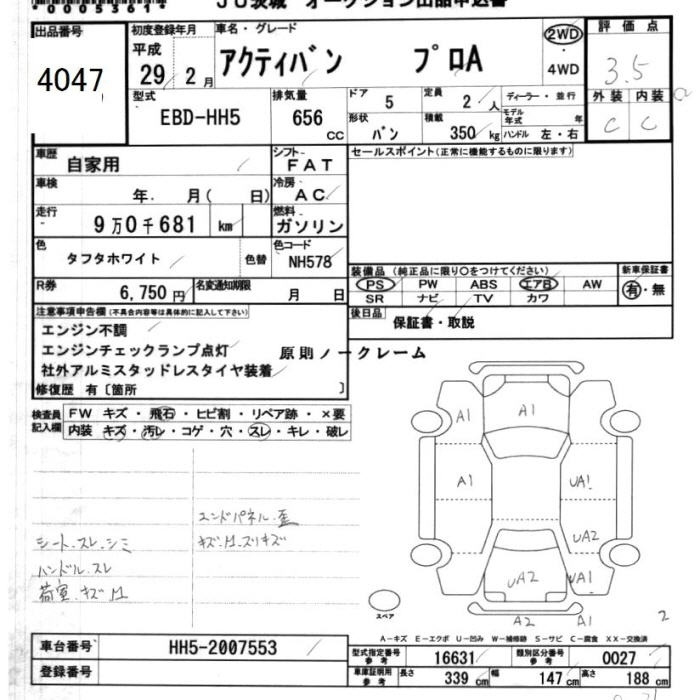 *0005361*
JU茨城 オークション出品申込書
出品番号
4047
初度登録年月
平成
29 2 月
車名・グレード
アクティバン プロA
2WD
・
4WD
評価点
3.5
外装 内装
C C
型式
EBD-HH5
排気量
656
cc
ドア
5
定員
2 人
ディーラー・並行
モデル年式 年
形状
バン
積載
350 kg
ハンドル 左・右
車歴
自家用
シフト
FAT
セールスポイント(正常に機能するものに限ります)
車検
年. 月( 日)
冷房
AC
走行
9万0千681 km
燃料
ガソリン
色
タフタホワイト
色替
色コード
NH578
装備品 (純正品に限り〇をつけてください)
PS PW ABS エアB AW
SR ナビ TV カワ
新車保証書
有・無
R券
6,750 円
名変通知期限
月 日
後日品
保証書・取説
注意事項申告欄(不具合内容等は具体的に記入して下さい)
エンジン不調
エンジンチェックランプ点灯
社外アルミスタッドレスタイヤ装着
原則ノークレーム
修復歴 有〔箇所 〕
検査員記入欄
FW キズ・飛石・ヒビ割・リペア跡・×要
内装 キズ・汚レ・コゲ・穴・スレ・キレ・破レ
エンドパネル.歪
キズ.M.スリキズ
シート.スレ.シミ
ハンドル.スレ
荷室.キズ.M
A1 A1
A1 UA1
UA2
UA2 UA1
A2 A1
スペア
2
A-キズ E-エクボ U-凹み W-補修跡 S-サビ C-腐食 XX-交換済
車台番号
HH5-2007553
登録番号
型式指定番号 参考
16631
類別区分番号 参考
0027
車庫証明用 参考
長さ 339 cm
幅 147 cm
高さ 188 cm